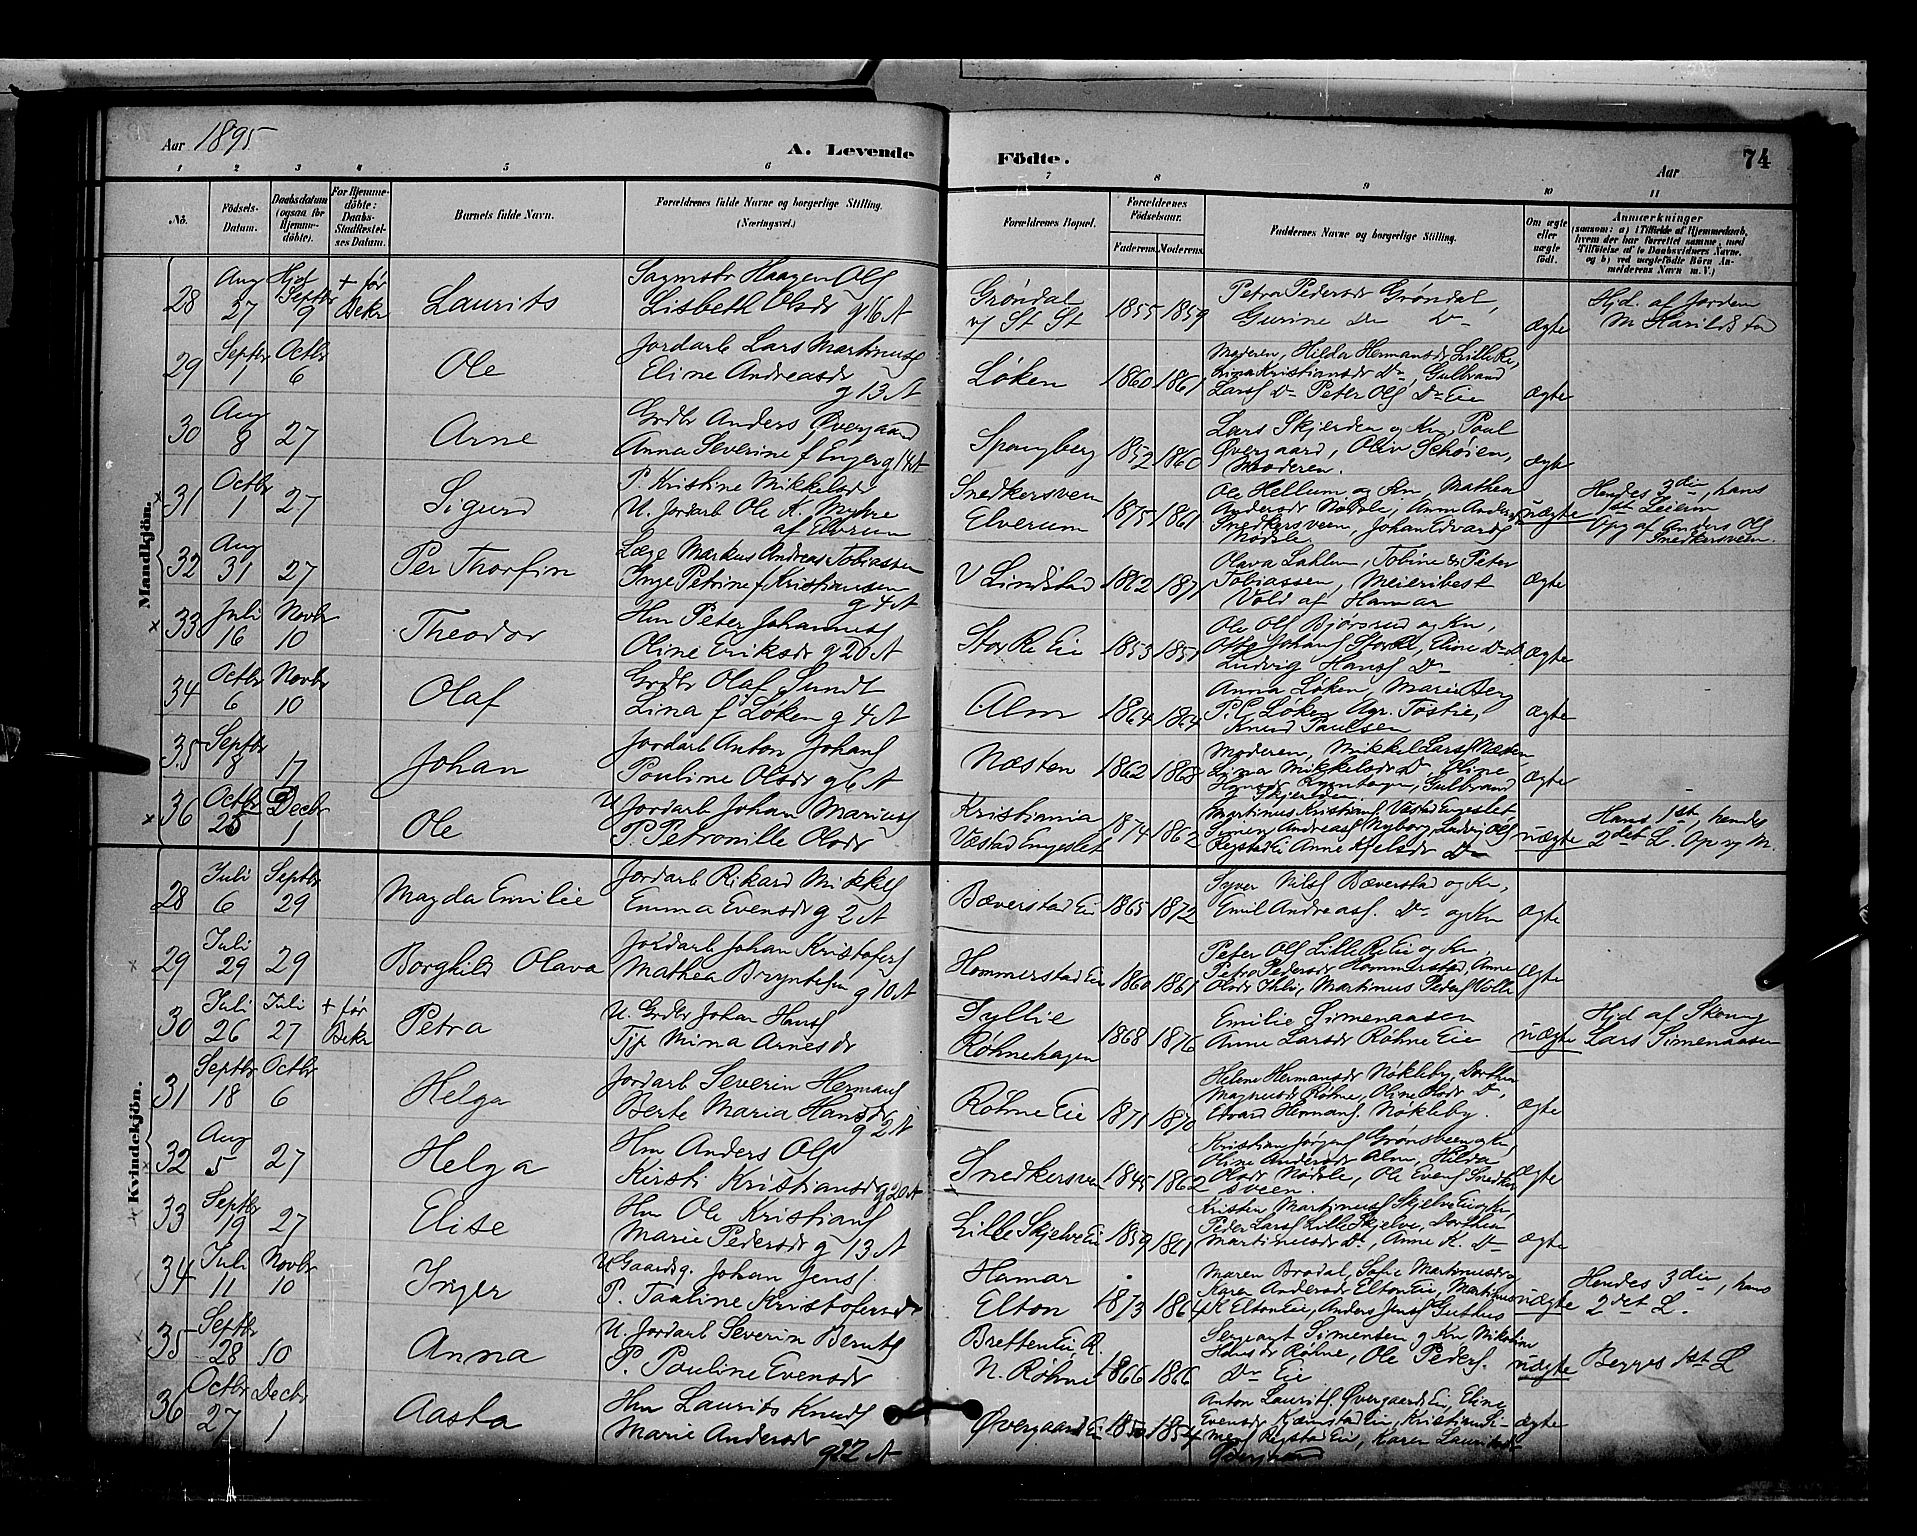 Aar 1895
A. Levende Födte.
74
Aar
1 2 3 4 5 6 7 8 9 10 11
No.
Födsels-Datum.
Daabsdatum (ogsaa for Hjemmedöbte).
For Hjemmedöbte: Daabs-Stadfestelses Datum.
Barnets fulde Navn.
Forældrenes fulde Navne og borgerlige Stilling. (Næringsvei.)
Forældrenes Bopæl.
Forældrenes Födselsaar.
Faderens. Moderens.
Faddernes Navne og borgerlige Stilling.
Om ægte eller uægte födt.
Anmærkninger
(saasom: a) i Tilfælde af Hjemmedaab, hvem der har forrettet samme, med Tilföielse af to Daabsvidners Navne, og b) ved uegtefödte Börn Anmelderens Navn m. V.)
Mandkjön.
28 Aug 27 Hjd Septbr 9 + før Bekr Laurits
Sagmstr Haagen Ols
Lisbeth Olsdr g 16 A
Grøndal
v/ St St
1855 1859
Petra Pedersdr Grøndal,
Gurine Do Do
ægte
Hjd. af Jordem
M Harildstad
29 Septbr 1 Octbr 6 Ole
Jordarb Lars Martinus
Eline Andreasdr
g 13 A
Løken
1860 1861
Moderen, Hilda Hermansdr Lille Re,
Lina Kristiansdr Do, Gulbrand
Lars Do Peter Ols Do Eie
ægte
30 Aug 8 27 Arne
Grdbr Anders Øvergaard
Anna Severine f Enger g 14 A
Spangberg
1852 1860
Lars Skjerden og Kn, Poul
Øvergaard, Oliv Schøien,
Moderen.
ægte
31 Octbr 1 27 Sigurd
P. Kristine Mikkelsdr
U. Jordarb Ole K. Myhre
af Elverum
Snedkersveen
Elverum
1875 1861
Ole Hellum og Kn, Mathea
Andersdr Nødsle, Anne Andersdr
Snedkersveen, Johan Edvards
Nødsle
uægte
Hendes 3die, hans
1st Leierm
Opg af Anders Ols
Snedkersveen
32 Aug 31 27 Per Thorfin
Læge Markus Andreas Tobiassen
Inga Petrine f Kristiansen
g 4 A
V Lundstad
1862 1871
Olava Dahlen, Tobine & Peter
Tobiassen, Meieribest
Vold af Hamar
ægte
33 Juli 16 Novbr 10 Theodor
Hm Peter Johannes
Oline Eriksdr g 20 A
Stor Re Eie
1853 1851
Ole Ols Bjørsrud og Kn,
Otto Johans Stor Re, Eline Do
Ludvig Hans Do
ægte
34 Octbr 6 Novbr 10 Olaf
Grdbr Olaf Sundt
Lina f Løken g 4 A
Alm
1864 1864
Anna Løken, Marie Berg
P. C. Løken Agr. Tøstie,
Knud Paulsen
ægte
35 Septbr 8 17 Johan
Jordarb Anton Johans
Pauline Olsdr g 6 A
Næsten
1862 1868
Moderen, Mikkel Lars Næsten
Lina Mikkelsdr Do Oline
Gulbrand
Skjerden
ægte
36 Octbr 25 Decbr 1 Ole
U Jordarb Johan Marius
P. Petronille Olsdr
Kristiania
Væstad Engeslet
1874 1862
Martinus Kristians Væstad Engeslet,
Simen Andreas Nyborg, Ludvig Ols
Regstad Eie Anne Kjelsdr Do
uægte
Hans 1st, hendes
2det L. Op v/ M.
Kvindekjön.
28 Juli 6 Septbr 29 Magda Emilie
Jordarb Rikard Mikkels
Emma Evensdr g 2 A
Bæverstad Eie
1865 1872
Syver Nils Bæverstad og Kn,
Emil Andreas. Do og Kn
ægte
29 Juli 29 29 Borghild Olava
Jordarb Johan Kristofers
Mathea Bryntesen
g 10 A
Hommerstad Eie
1860 1861
Peter Ols Lille Re Eie og Kn
Petra Pedersdr Hommerstad, Anne
Olsdr Ihle, Martinus Peders Volle
ægte
30 Juli 26 Juli 27 + før Bekr Petra
U. Grdbr Johan Hans
Tjp Mina Arnesdr
Syllie
Røhnehagen
1868 1876
Emilie Simenaasen
Anne Larsdr Røhne Eie
uægte
Hjd af Skomg
Lars Simenaasen
31 Septbr 18 Octbr 6 Helga
Jordarb Severin Hermans
Berte Maria Hansdr
g 2 A
Røhne Eie
1871 1870
Helene Hermansdr Nøkleby, Dorthea
Magnusdr Røhne, Oline Olsdr Do,
Edvard Hermans. Nøkleby.
ægte
32 Aug 5 27 Helga
Hm Anders Ols
Kirsti Kristiansdr g 20 A
Snedkersveen
1845 1862
Kristian Jørgens Grønsveen og Kn,
Oline Andersdr Alm, Hilda
Olsdr Nødsle, Ole Evens Snedker
sveen.
ægte
33 Septbr 19 27 Elise
Hm Ole Kristians
Marie Pedersdr g 13 A
Lille Skjelve Eie
1859 1861
Kristen Martinus Skjelve Eie og Kn,
Peder Lars Lille Skjelve, Dorthea
Martinusdr Do, Anne K. Do
ægte
34 Juli 11 Novbr 10 Inger
U Gaardsg. Johan Jens.
P. Pauline Kristofersdr
Hamar
Elton
1873 1864
Maren Brodal, Sofie Martinusdr
Karen Andersdr Elton Eie, Martinus
K Elton Eie, Anders Jens Guthus
uægte
Hendes 3die, hans
2det L.
35 Septbr 28 10 Anna
U. Jordarb Severin Bernts
P. Pauline Evensdr
Bretten Eie, R.
N. Røhne
1866 1866
Sergeant Simensen og Kn Nikoline
Hansdr Røhne, Ole Peders.
Do Eie
uægte
Begges 1st L
36 Octbr 27 Decbr 1 Aasta
Hm Laurits Knuds
Marie Andersdr
g 22 A
Øvergaard Eie
1850 1854
Anton Laurits Øvergaard Eie, Eline
Evensdr Kæmstad Eie, Kristian Si-
mens Regstad Eie, Karen Lauritsdr
Øvergaard
ægte